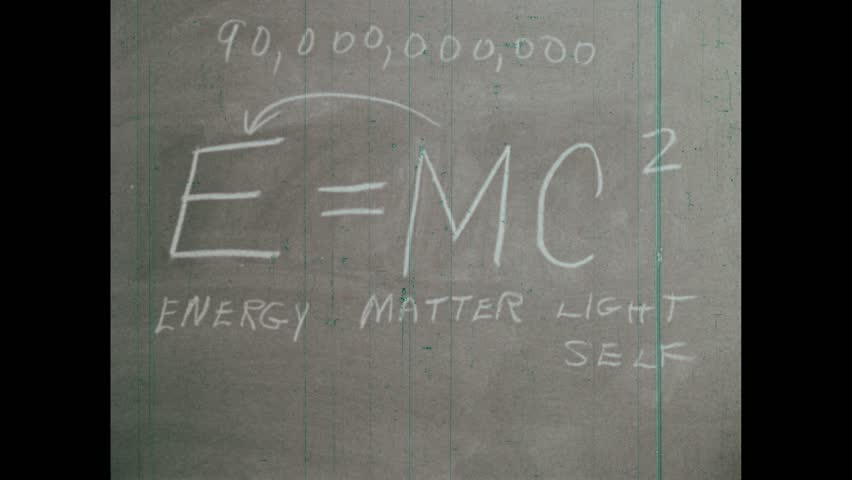 90,000,000,000
E=MC²
ENERGY MATTER LIGHT
SELF